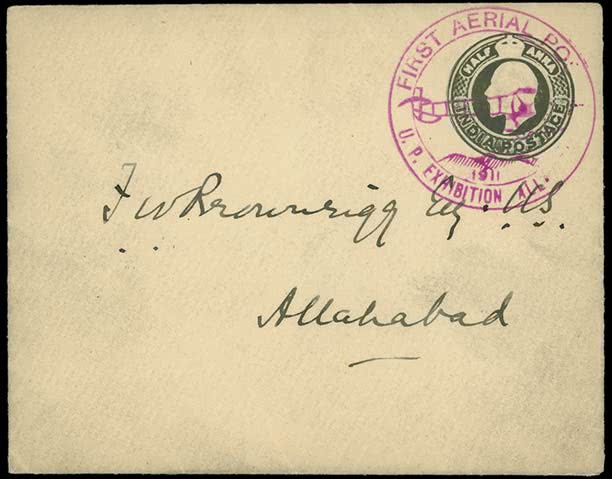 FIRST AERIAL POS
HALF ANNA
INDIA POSTAGE
1911
U. P. EXHIBITION ALL.
F W Brownrigg Esq. ICS.
Allahabad